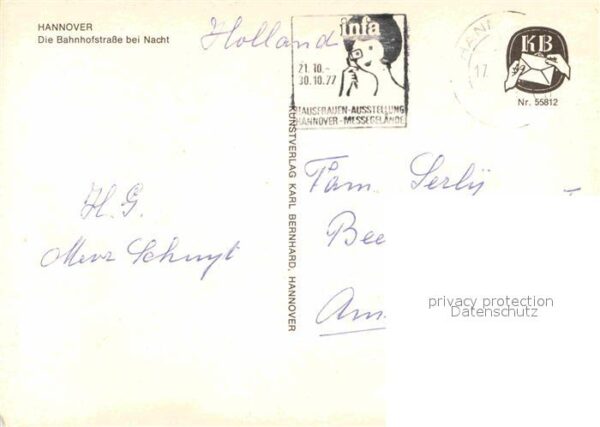 HANNOVER
Die Bahnhofstraße bei Nacht
Holland
infa
21.10.-
30.10.77
HAUSFRAUEN-AUSSTELLUNG
HANNOVER-MESSEGELÄNDE
HAN
17.
KB
Nr. 55812
KUNSTVERLAG KARL BERNHARD, HANNOVER
H.G.
Fam.
Bee
Am
privacy protection
Datenschutz